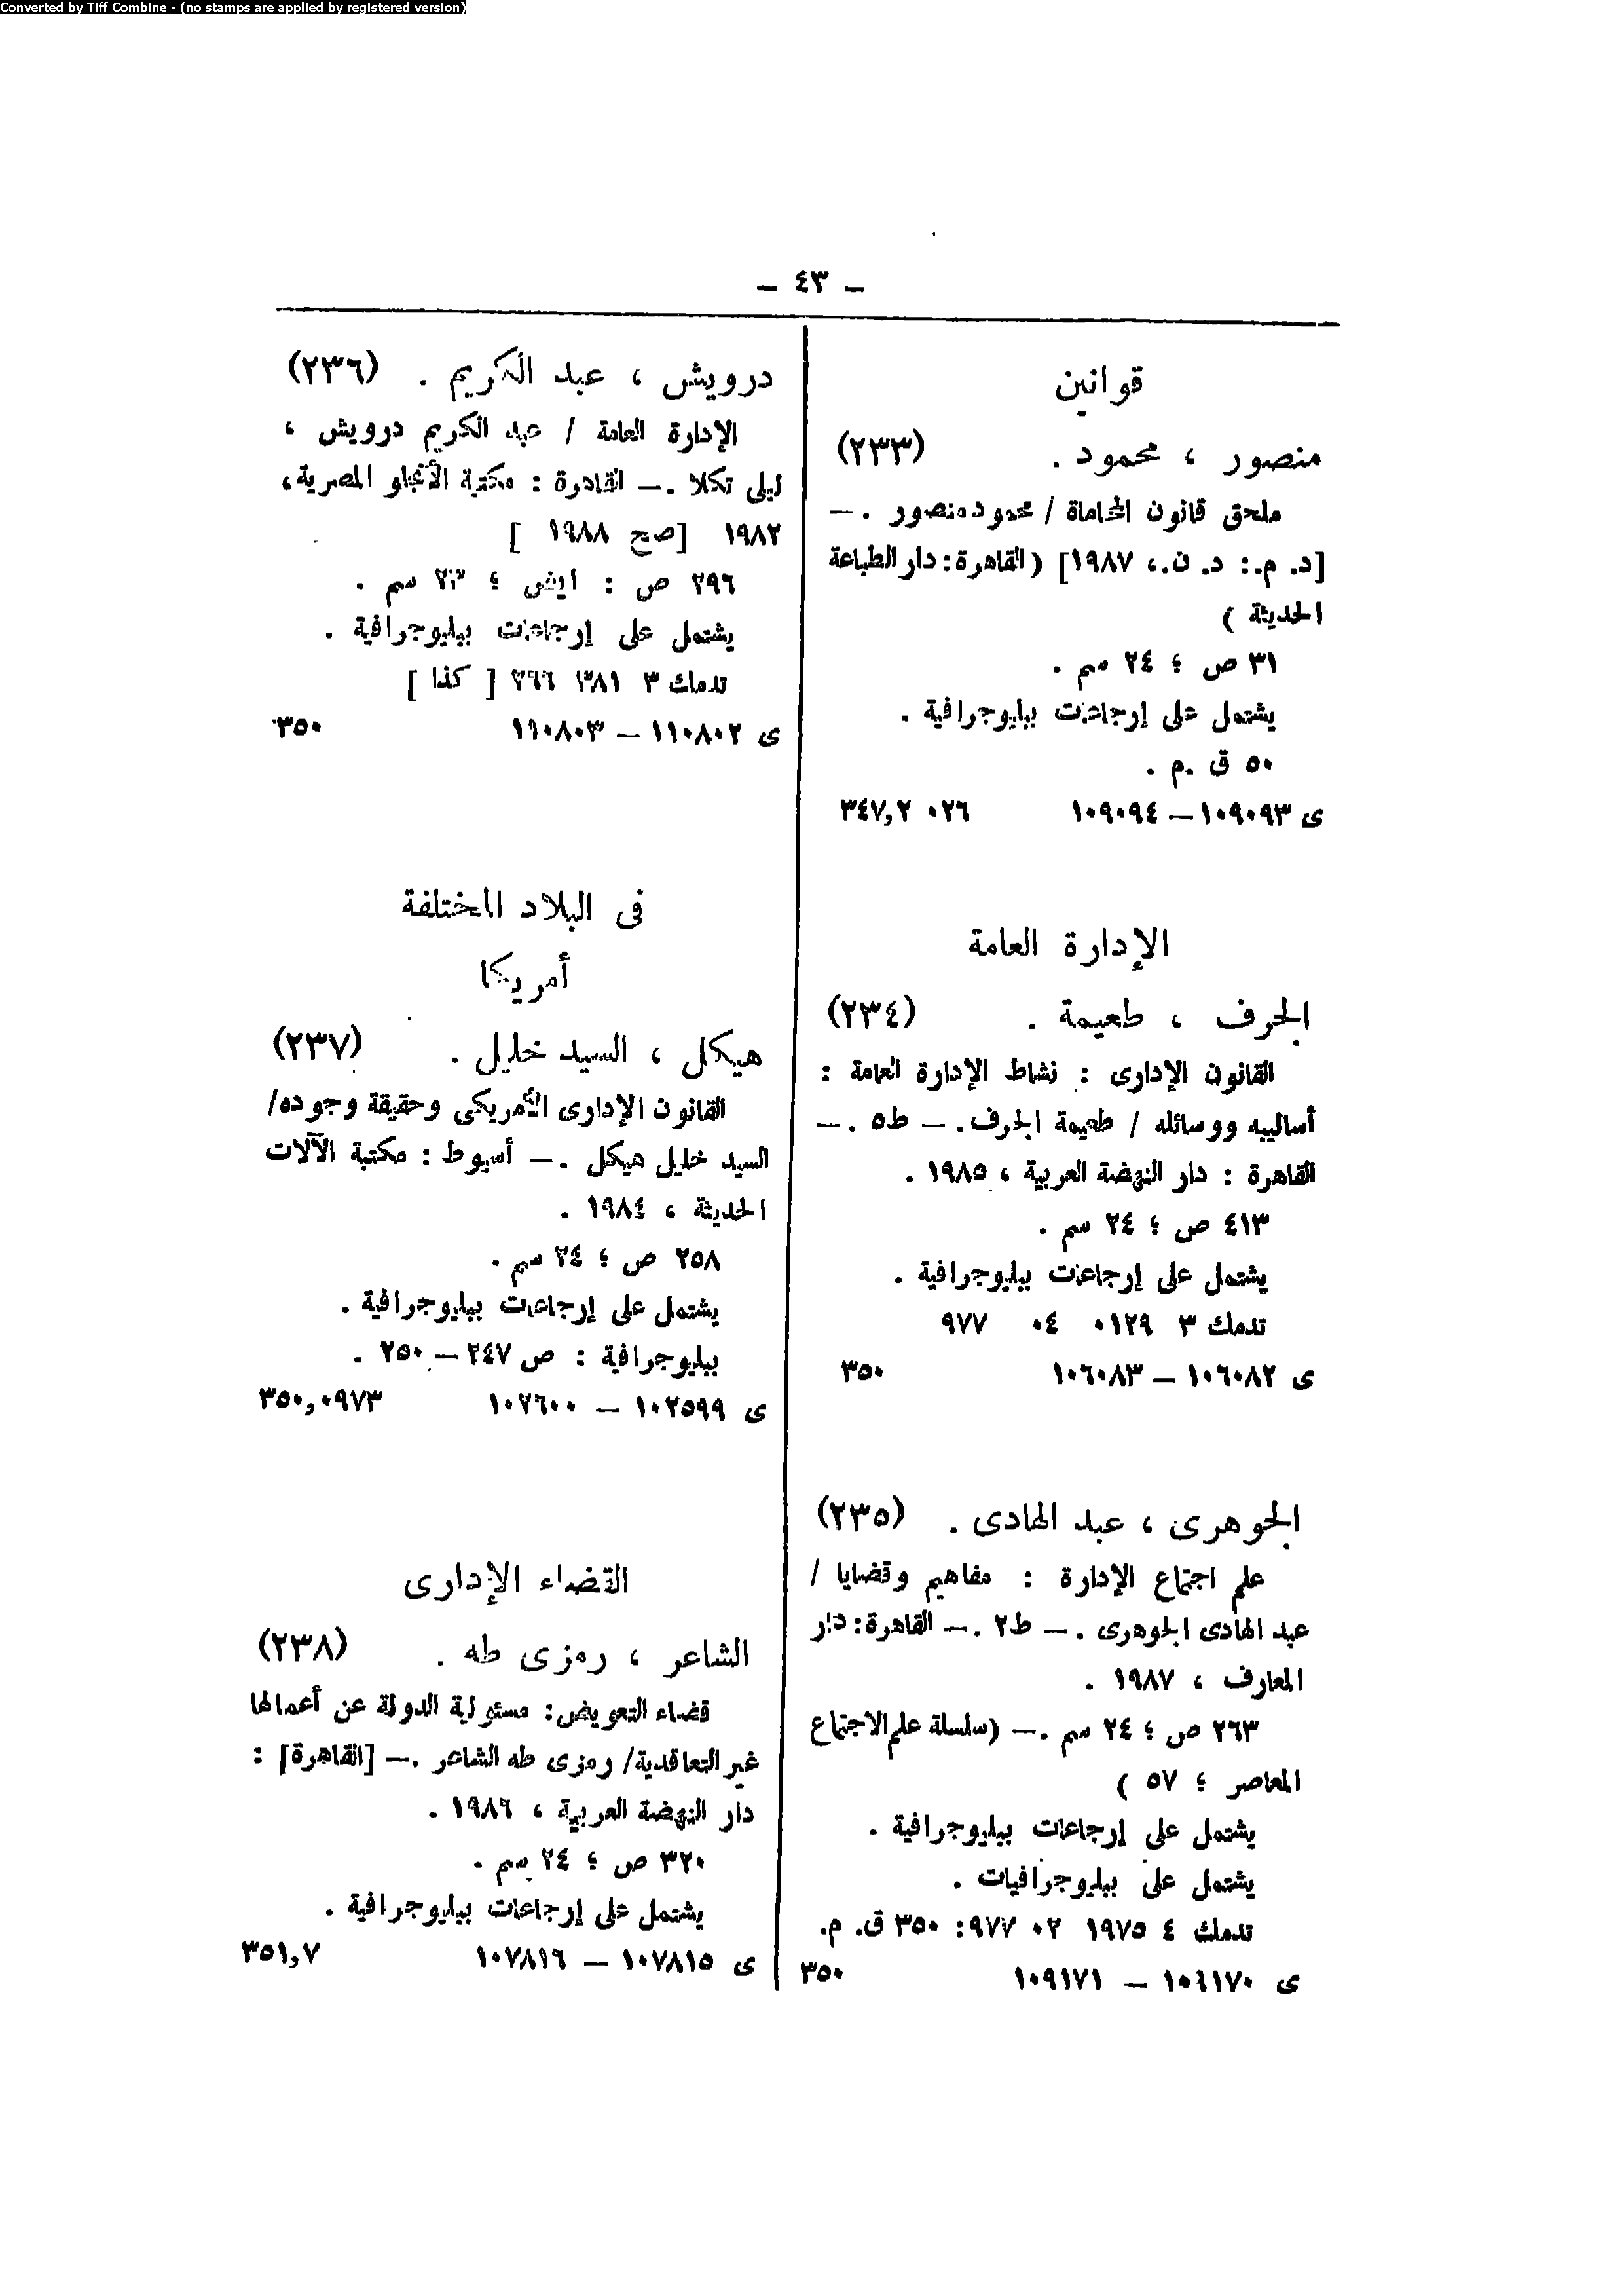 Converted by Tiff Combine - (no stamps are applied by registered version)
— ٤٣ —
قوانين
منصور ، محمود . (٢٣٣)
ملحق قانون المحاماة / محمود منصور . —
[د. م.: د. ن.، ١٩٨٧] (القاهرة: دار الطباعة
الحديثة )
٣١ ص ؛ ٢٤ سم .
يشتمل على إرجاعات ببليوجرافية .
٥٠ ق .م .
ى ١٠٩٠٩٣ — ١٠٩٠٩٤ ٣٤٧,٢ ٠٢٦
الإدارة العامة
الجرف ، طعيمة . (٢٣٤)
القانون الإدارى : نشاط الإدارة العامة :
أساليبه ووسائله / طعيمة الجرف. — ط٥ . —
القاهرة : دار النهضة العربية ، ١٩٨٥ .
٤١٣ ص ؛ ٢٤ سم .
يشتمل على إرجاعات ببليوجرافية .
تدمك ٣ ٠١٢٩ ٠٤ ٩٧٧
ى ١٠٦٠٨٢ — ١٠٦٠٨٣ ٣٥٠
الجوهرى ، عبد الهادى . (٢٣٥)
علم اجتماع الإدارة : مفاهيم وقضايا /
عبد الهادى الجوهرى . — ط٢ . — القاهرة: دار
المعارف ، ١٩٨٧ .
٢٦٣ ص ؛ ٢٤ سم .— (سلسلة علم الاجتماع
المعاصر ؛ ٥٧ )
يشتمل على إرجاعات ببليوجرافية .
يشتمل على ببليوجرافيات .
تدمك ٤ ١٩٧٥ ٠٢ ٩٧٧: ٣٥٠ ق. م.
ى — ١٠٩١٧١ ٣٥٠
درويش ، عبد الكريم . (٢٣٦)
الإدارة العامة / عبد الكريم درويش ،
ليلى تكلا .— القاهرة : مكتبة الأنجلو المصرية،
١٩٨٢ [صح ١٩٨٨ ]
٢٩٦ ص : ايض ؛ سم .
يشتمل على إرجاعات ببليوجرافية .
تدمك ٣ ٣٨١ [ كذا ]
ى ١١٠٨٠٢ — ١١٠٨٠٣ ٣٥٠
فى البلاد المختلفة
أمريكا
هيكل ، السيد خليل . (٢٣٧)
القانون الإدارى الأمريكى وحقيقة وجوده/
السيد خليل هيكل .— أسيوط : مكتبة الآلات
الحديثة ، ١٩٨٤ .
٢٥٨ ص ؛ ٢٤ سم .
يشتمل على إرجاعات ببليوجرافية .
ببليوجرافية : ص ٢٤٧ — ٢٥٠ .
ى ١٠٢٥٩٩ — ١٠٢٦٠٠ ٣٥٠,٠٩٧٣
القضاء الإدارى
الشاعر ، رمزى طه . (٢٣٨)
قضاء التعويض: مسئولية الدولة عن أعمالها
غير التعاقدية/ رمزى طه الشاعر .— [القاهرة] :
دار النهضة العربية ، ١٩٨٦ .
٣٢٠ ص ؛ ٢٤ سم .
يشتمل على إرجاعات ببليوجرافية .
ى ١٠٧٨١٥ — ١٠٧٨١٦ ٣٥١,٧